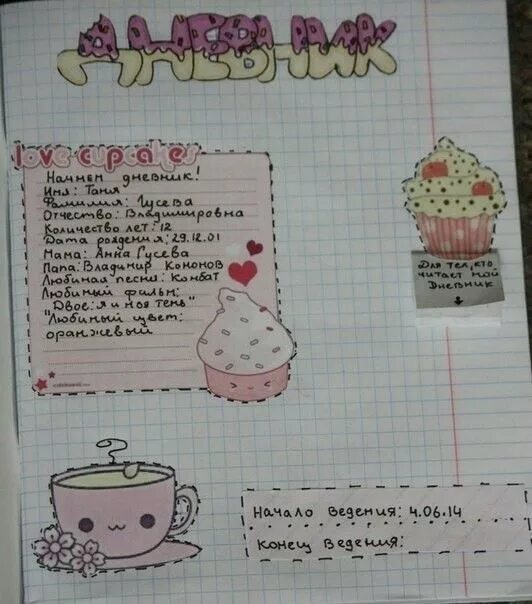 ДНЕВНИК
love cupcakes
Начнем дневник!
Имя: Таня
Фамилия: Гусева
Отчество: Владимировна
Количество лет: 12
Дата рождения: 29.12.01
Мама: Анна Гусева
Папа: Владимир Кононов
Любимая песня: Комбат
Любимый фильм:
"Двое: я и моя тень"
Любимый цвет:
оранжевый
Для тех, кто
читает мой
Дневник
Начало ведения: 4.06.14
Конец ведения: